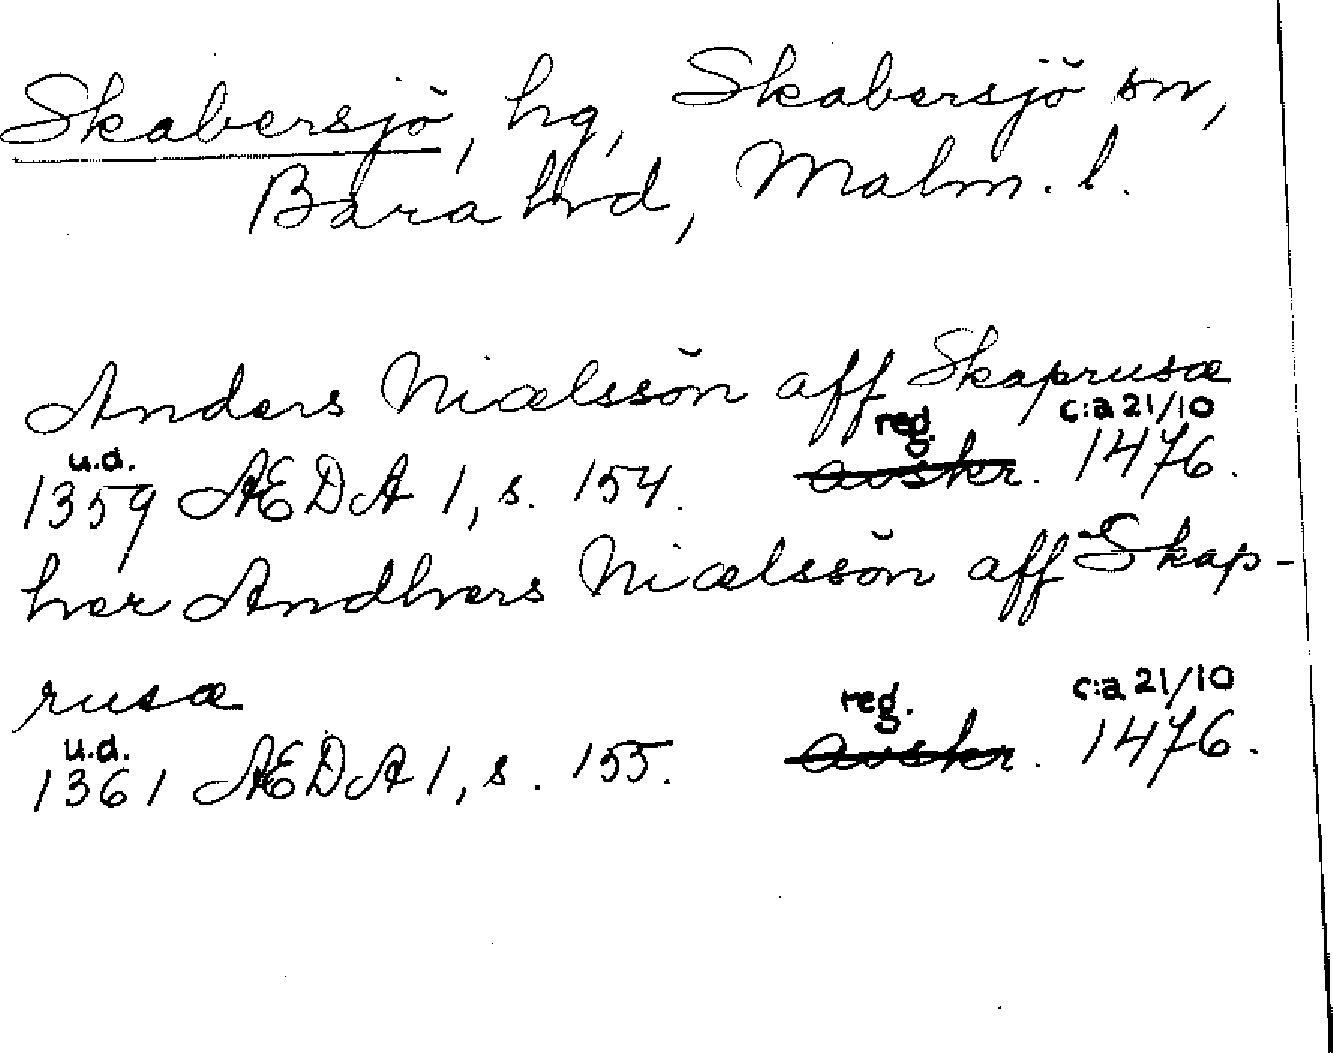 Skabersjö, hg, Skabersjö sn,
Bara hrd, Malm. l.
Anders Niælssön aff Skaprusæ
u.d. reg. c:a 21/10
1359 ÆDA 1, s. 154. avskr. 1476.
her Andhers Niælssön aff Skap-
rusæ
u.d. reg. c:a 21/10
1361 ÆDA 1, s. 155. avskr. 1476.